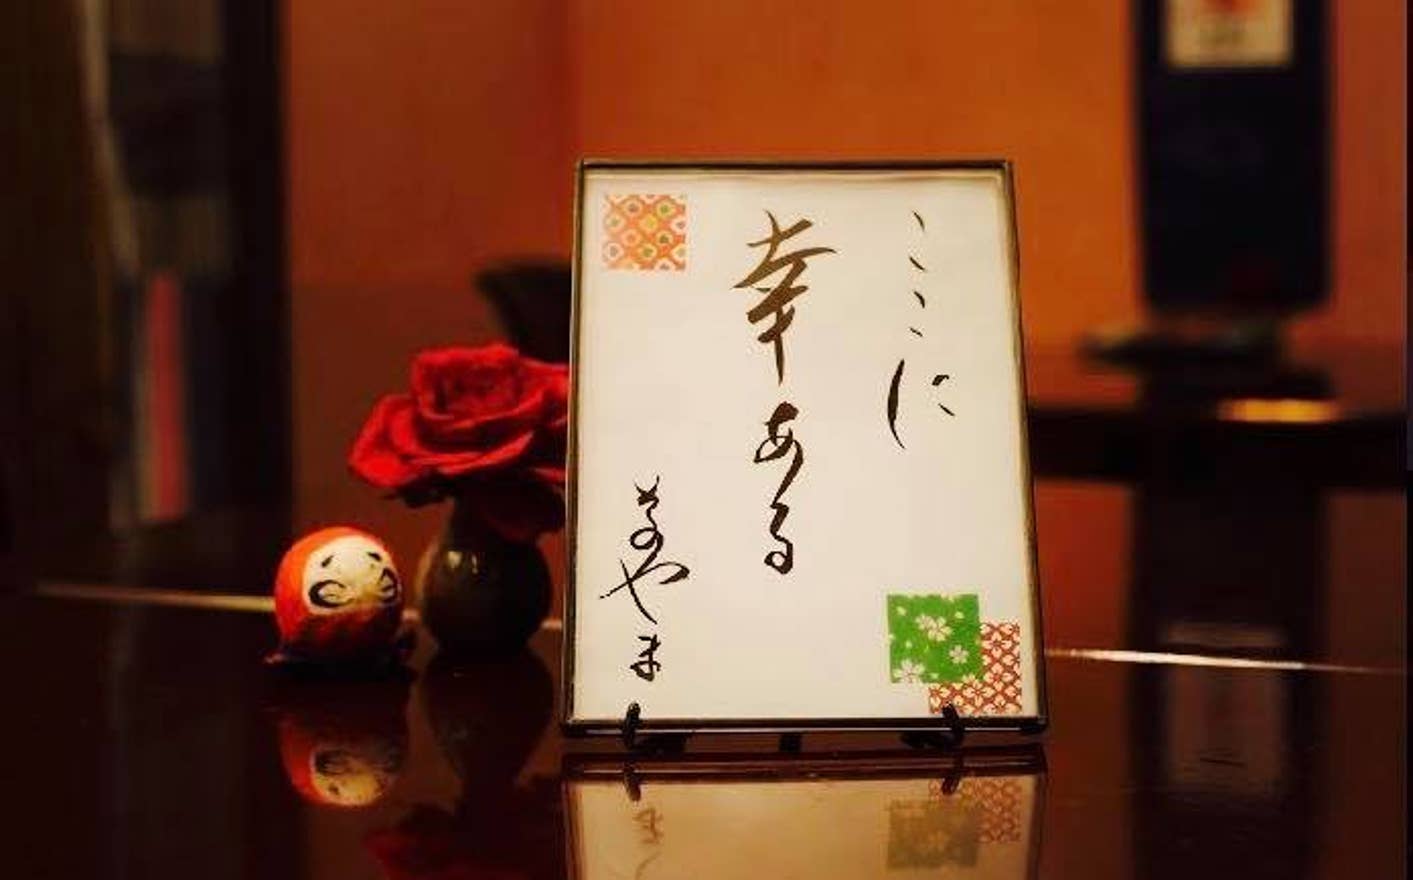 ここに
幸ある
そのやま